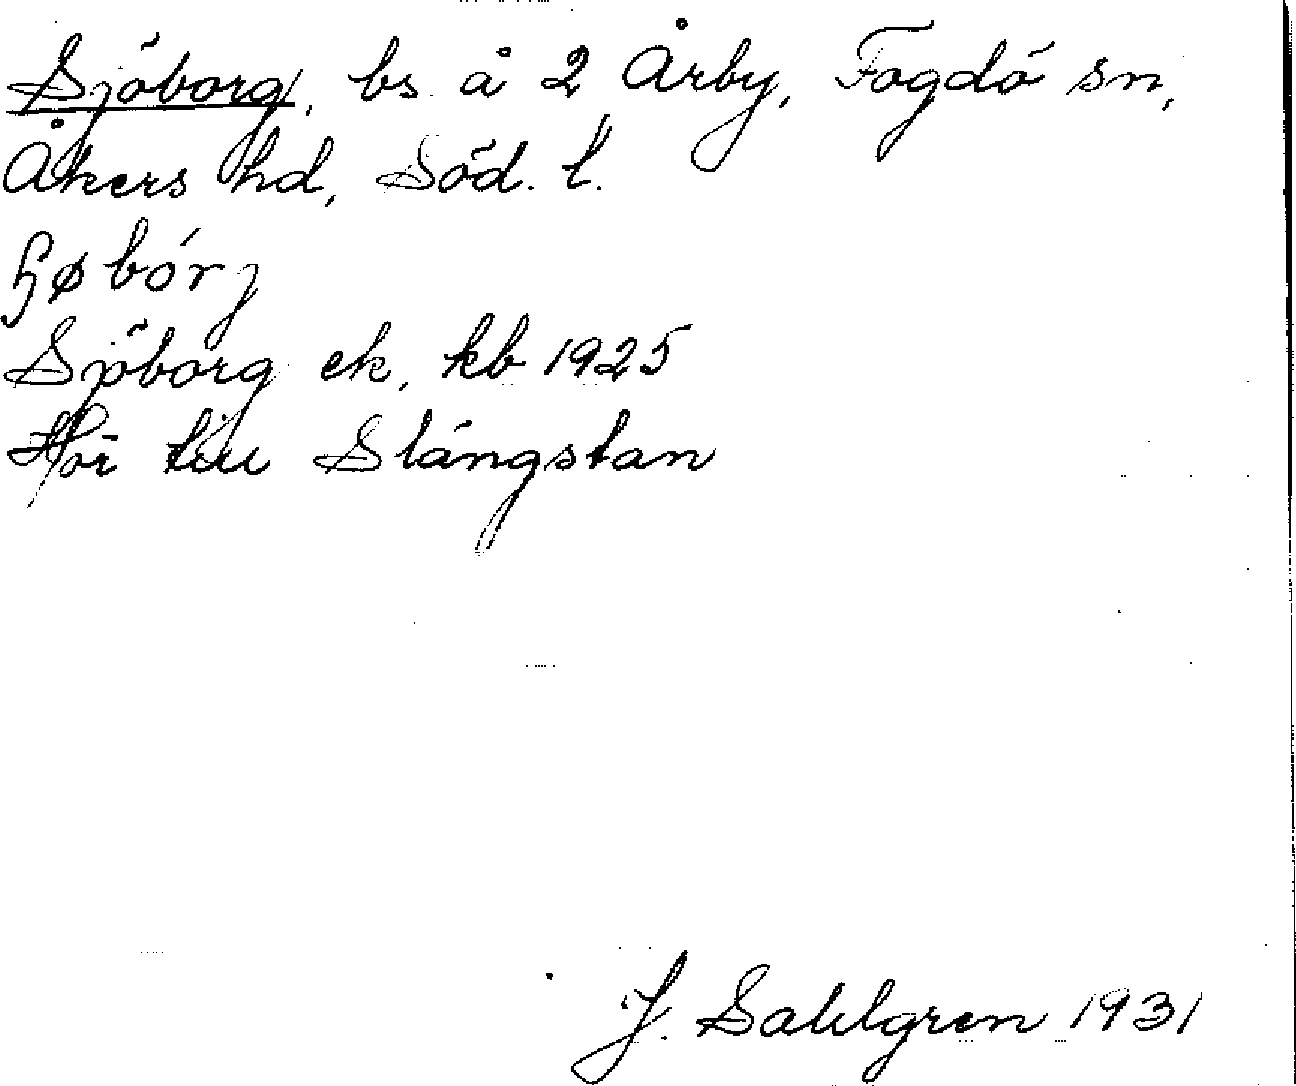 Sjöborg, bs å 2 Årby, Fogdö sn,
Åkers hd, Söd. l.
ɧøbórj
Sjöborg ek, kb 1925
Hör till Slängstan
J. Sahlgren 1931